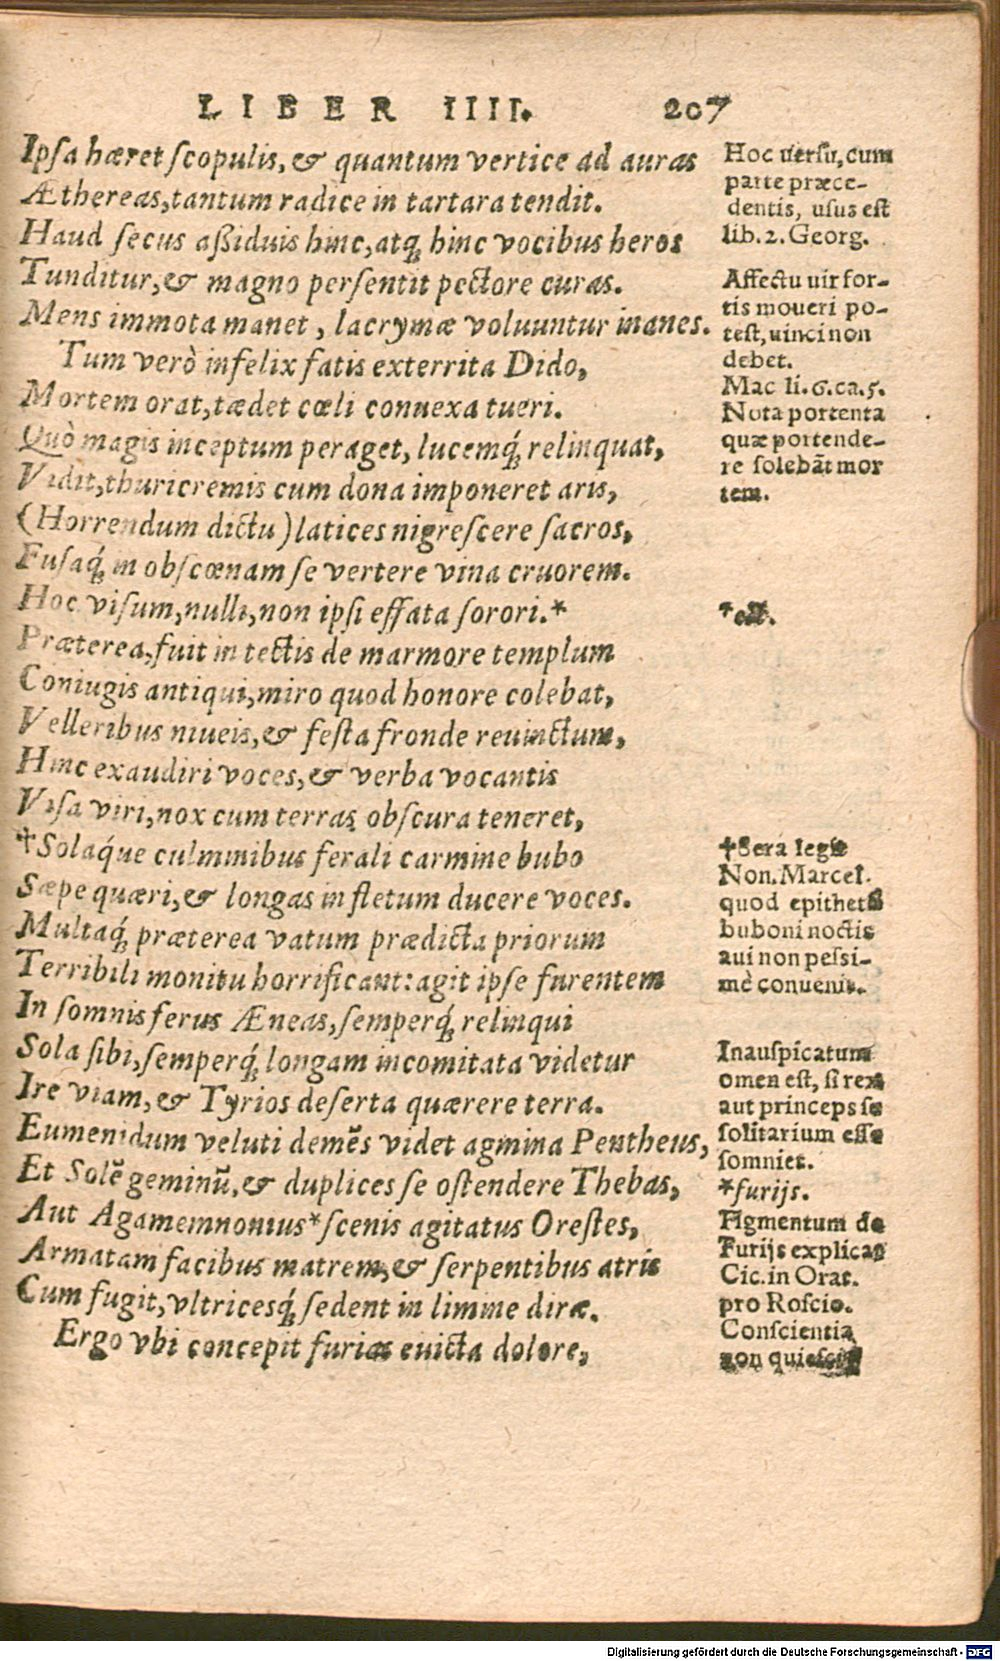 LIBER IIII. 207
Ipsa hæret scopulis, & quantum vertice ad auras
Æthereas, tantum radice in tartara tendit.
Haud secus aßiduis hinc, atq; hinc vocibus heros
Tunditur, & magno persentit pectore curas.
Mens immota manet, lacrymæ voluuntur inanes.
Tum verò infelix fatis exterrita Dido,
Mortem orat, tædet cœli conuexa tueri.
Quò magis inceptum peraget, lucemq́; relinquat,
Vidit, thuricremis cum dona imponeret aris,
(Horrendum dictu) latices nigrescere sacros,
Fusaq́; in obscœnam se vertere vina cruorem.
Hoc visum, nulli, non ipsi effata sorori.*
Præterea, fuit in tectis de marmore templum
Coniugis antiqui, miro quod honore colebat,
Velleribus niueis, & festa fronde reuinctum,
Hinc exaudiri voces, & verba vocantis
Visa viri, nox cum terras obscura teneret,
†Solaq́ue culminibus ferali carmine bubo
Sæpe quæri, & longas in fletum ducere voces.
Multaq́; præterea vatum prædicta priorum
Terribili monitu horrificant: agit ipse furentem
In somnis ferus Æneas, semperq́; relinqui
Sola sibi, semperq́; longam incomitata videtur
Ire viam, & Tyrios deserta quærere terra.
Eumenidum veluti demēs videt agmina Pentheus,
Et Solē geminū, & duplices se ostendere Thebas,
Aut Agamemnonius* scenis agitatus Orestes,
Armatam facibus matrem, & serpentibus atris
Cum fugit, vltricesq́; sedent in limine diræ.
Ergo vbi concepit furias euicta dolore,
Hoc uersu, cum
parte præce-
dentis, usus est
lib. 2. Georg.
Affectu uir for-
tis moueri po-
test, uinci non
debet.
Mac li. 6. ca. 5.
Nota portenta
quæ portende-
re solebāt mor
tem.
* est.
†Sera legit
Non. Marcel.
quod epithetō
buboni noctis
aui non pessi-
mè conuenit.
Inauspicatum
omen est, si rex
aut princeps se
solitarium esse
somniet.
*furijs.
Figmentum de
Furijs explicat
Cic. in Orat.
pro Roscio.
Conscientia
non quiescit
Digitalisierung gefördert durch die Deutsche Forschungsgemeinschaft - DFG